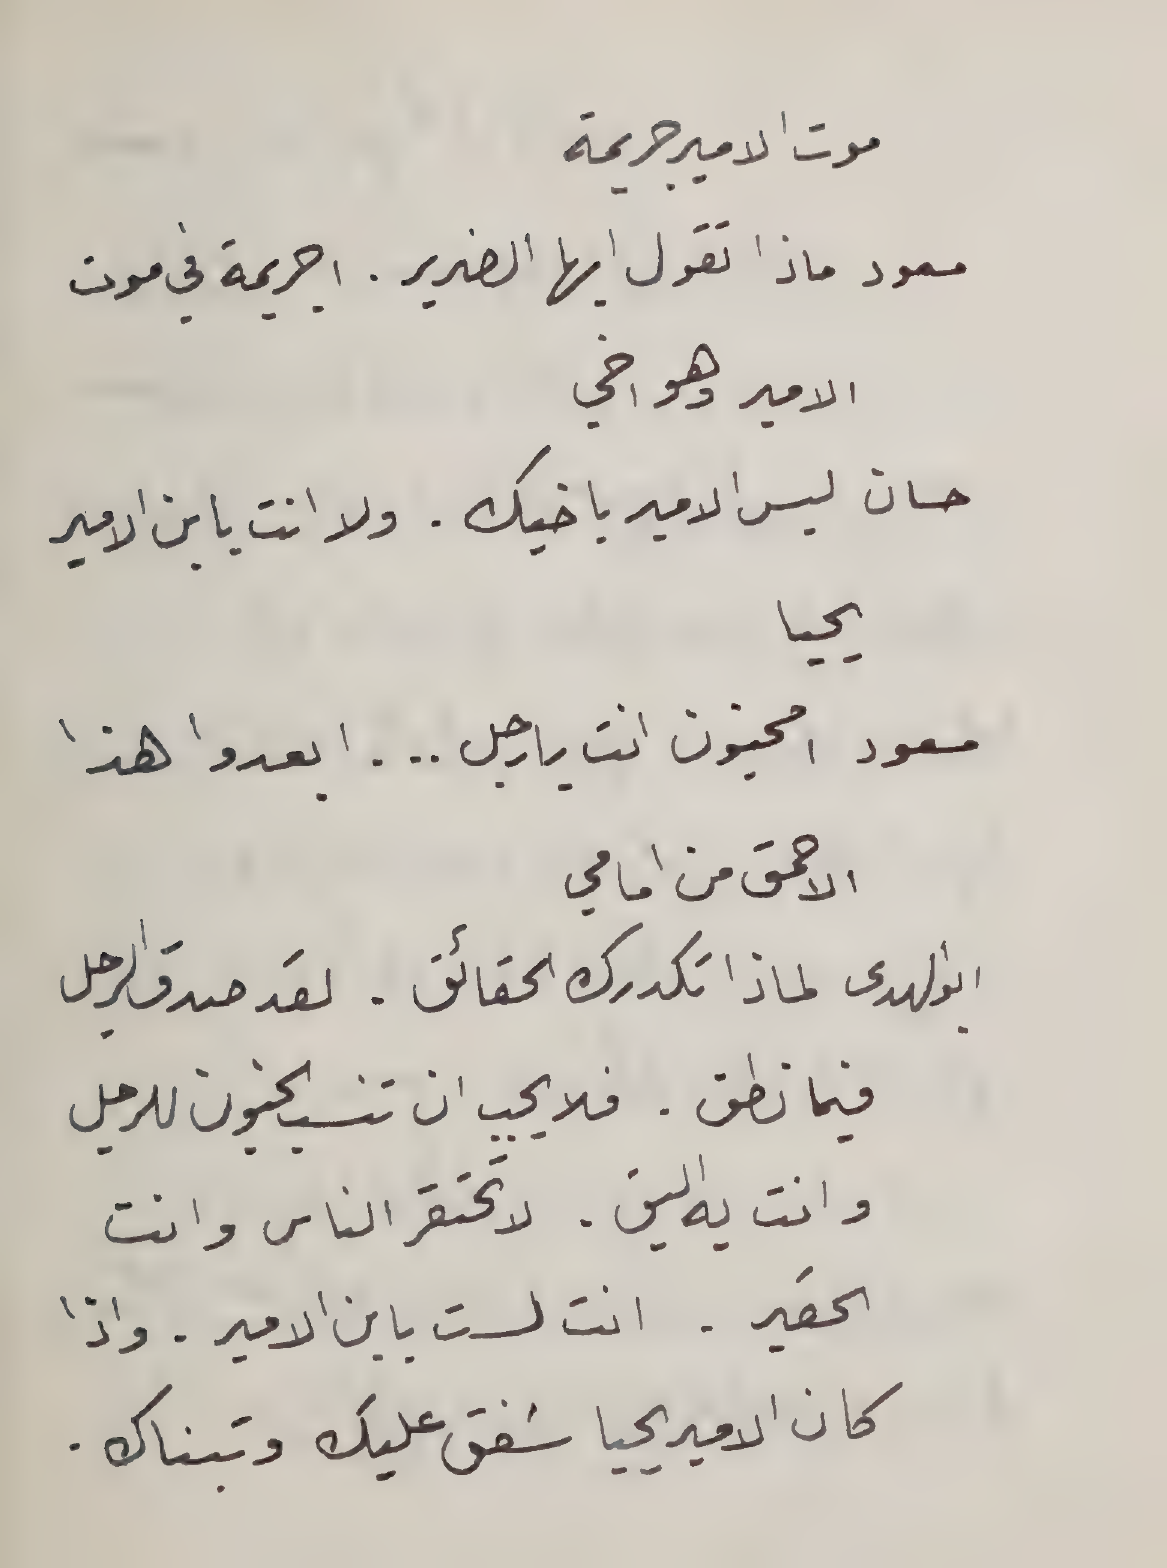 موت الامير جريمة
مسعود ماذا تقول ايها الضرير . اجريمة في موت
الامير وهو اخي
حسان ليس الامير باخيك . ولا انت بابن الامير
يحيا
مسعود امجنون انت يا رجل ... ابعدوا هذا
الاحمق من امامي
ابو الهدى لماذا تكدرك الحقائق . لقد صدق الرجل
فيما نطق . فلا يجب ان تنسب الجنون للرجل
وانت به اليق . لا تحتقر الناس وانت
الحقير . انت لست بابن الامير . واذا
كان الامير يحيا شفق عليك وتبناك .